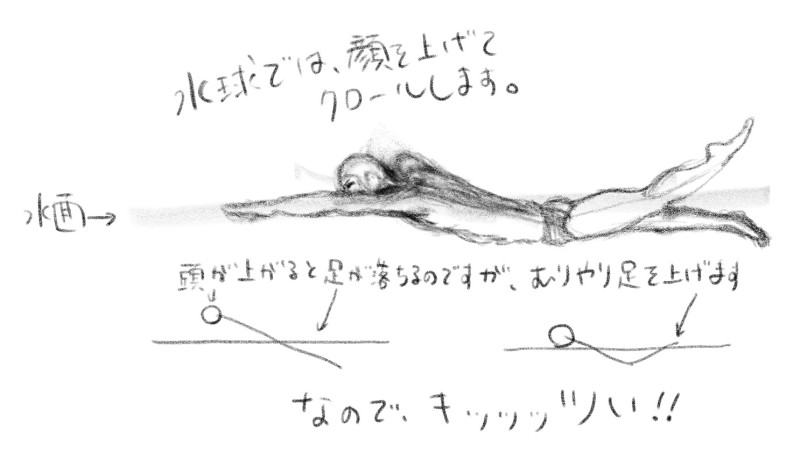 水球では、顔を上げて
クロールします。
水面→
頭が上がると足が落ちるのですが、むりやり足を上げます
なので、キッッッツい!!